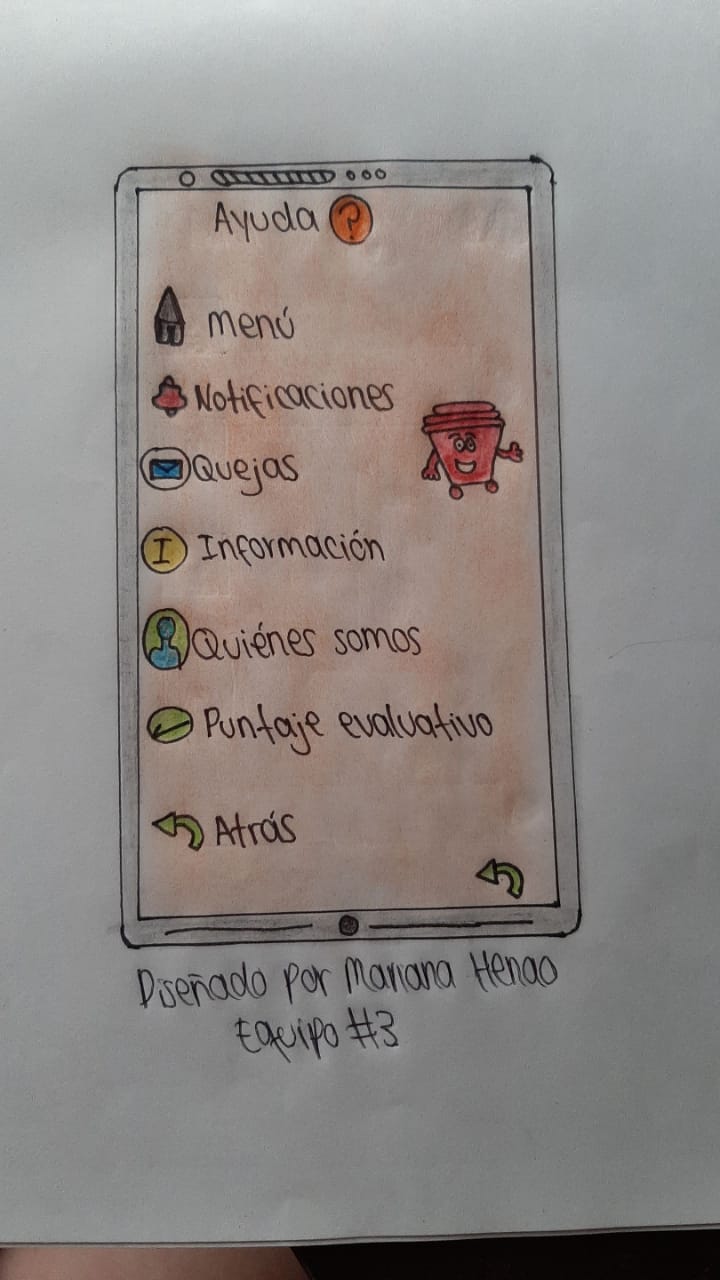 Ayuda ?
menú
Notificaciones
Quejas
I Información
Quiénes somos
Puntaje evaluativo
Atrás
Diseñado por Mariana Henao
Equipo #3